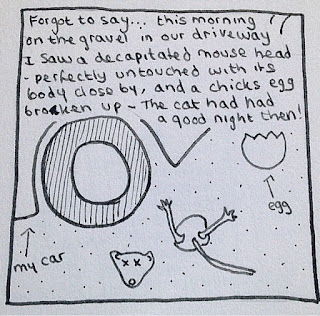 Forgot to say... this morning
on the gravel in our driveway
I saw a decapitated mouse head
- perfectly untouched with its
body close by, and a chicks egg
broken up - The cat had had
a good night then!
egg
my car